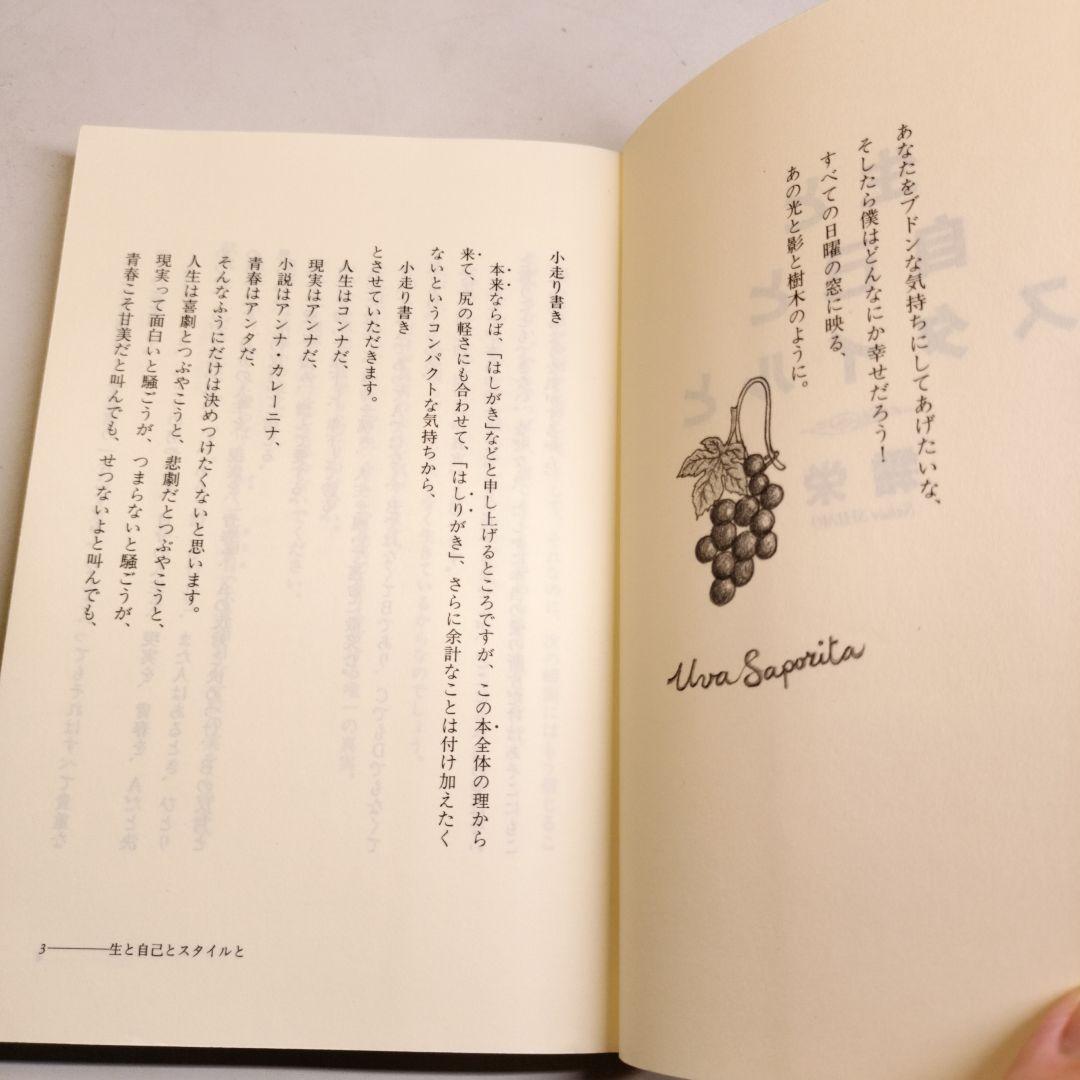 あなたをブドンな気持ちにしてあげたいな、
そしたら僕はどんなにか幸せだろう！
すべての日曜の窓に映る、
あの光と影と樹木のように。
Uva Saporita
小走り書き
本来ならば、「はしがき」などと申し上げるところですが、この本全体の理から
来て、尻の軽さにも合わせて、「はしりがき」、さらに余計なことは付け加えたく
ないというコンパクトな気持ちから、
小走り書き
とさせていただきます。
人生はコンナだ、
現実はアンナだ、
小説はアンナ・カレーニナ、
青春はアンタだ、
そんなふうにだけは決めつけたくないと思います。
人生は喜劇とつぶやこうと、悲劇だとつぶやこうと、
現実って面白いと騒ごうが、つまらないと騒ごうが、
青春こそ甘美だと叫んでも、せつないよと叫んでも、
3――――生と自己とスタイルと